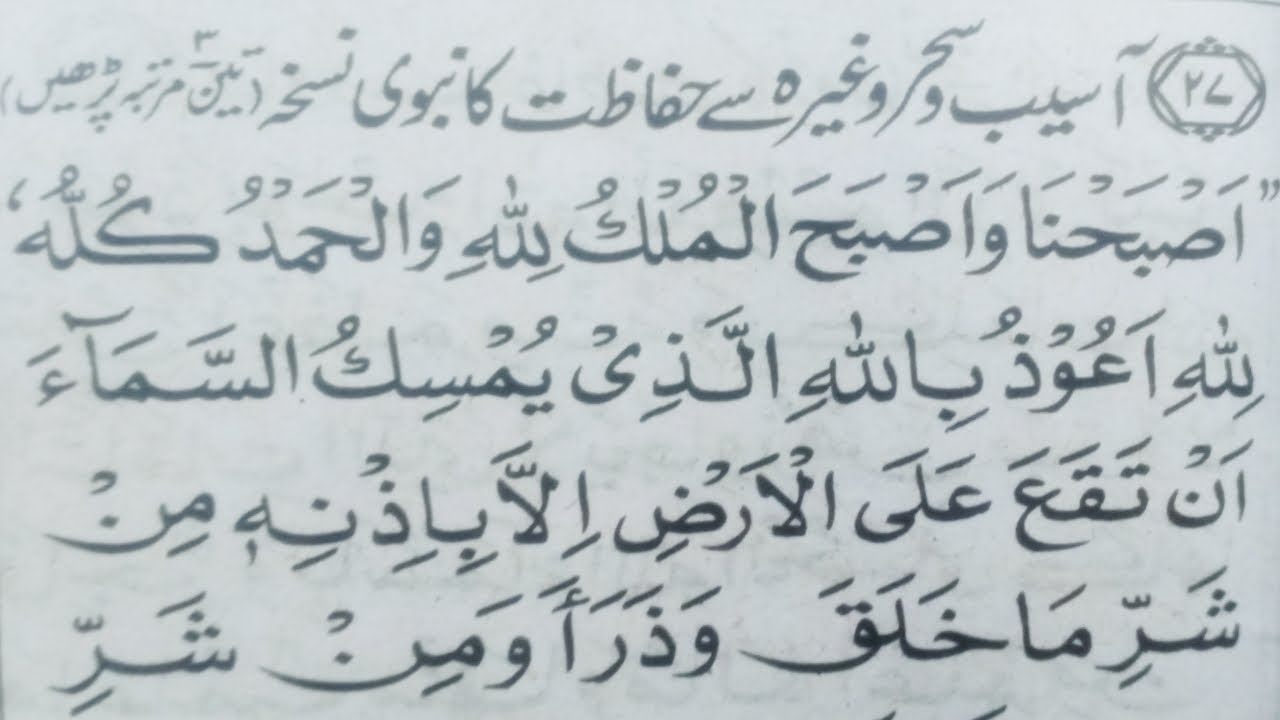 ۲۷ آسیب و سحر وغیرہ سے حفاظت کا نبوی نسخہ (تین ۳ مرتبہ پڑھیں)
”اَصْبَحْنَا وَاَصْبَحَ الْمُلْكُ لِلّٰهِ وَالْحَمْدُ كُلُّهُ،
لِلّٰهِ اَعُوْذُ بِاللّٰهِ الَّذِىْ يُمْسِكُ السَّمَآءَ
اَنْ تَقَعَ عَلَى الْاَرْضِ اِلَّا بِاِذْنِهٖ مِنْ
شَرِّ مَا خَلَقَ وَذَرَأَ وَمِنْ شَرِّ